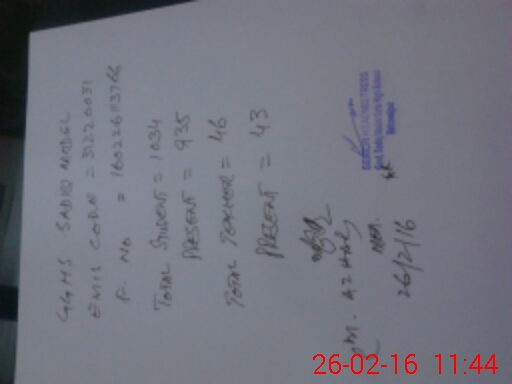 GGHS SADIQ MODEL
EMIS CODE = 31220031
F. NO =
TOTAL STUDENT = 1034
PRESENT = 935
TOTAL TEACHER = 46
PRESENT = 43
M. AZHAR
MEA.
26/2/16
SENIOR HEADMISTRESS
26-02-16 11:44